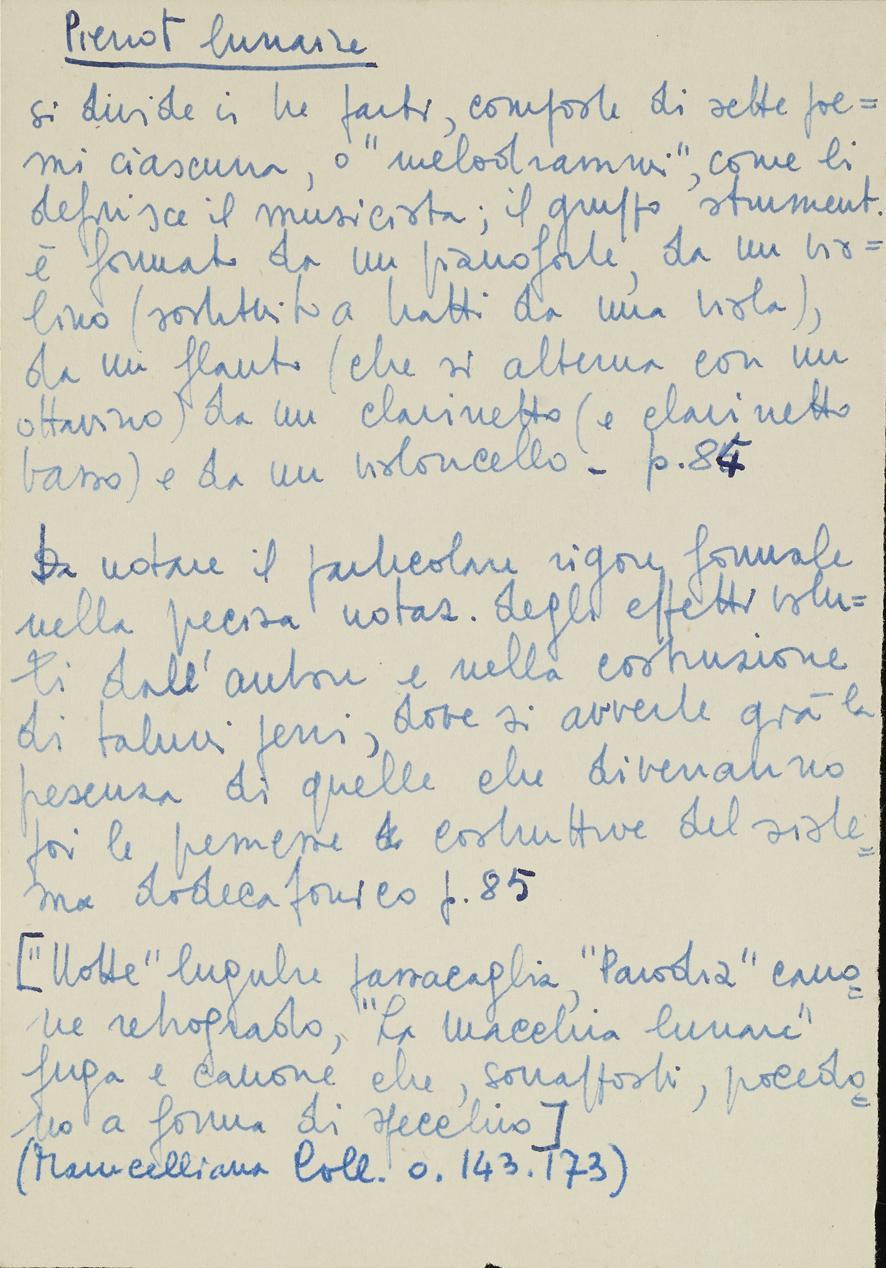 Pierrot lunaire
si divide in tre parti, composte di sette poe=
mi ciascuna, o "melodrammi", come li
definisce il musicista; il gruppo strument.
è formato da un pianoforte, da un vio=
lino (sostituito a tratti da una viola),
da un flauto (che si alterna con un
ottavino) da un clarinetto (e clarinetto
basso) e da un violoncello - p.84
Da notare il particolare rigore formale
nella precisa notaz. degli effetti volu=
ti dall'autore e nella costruzione
di taluni pezzi, dove si avverte già la
presenza di quelle che diverranno
poi le premesse costruttive del siste=
ma dodecafonico p.85
["Notte" lugubre passacaglia, "Parodia" cano=
ne retrogrado, "La macchia lunare"
fuga e canone che, sovrapposti, procedo=
no a forma di specchio]
(Marucelliana Coll. o. 143.173)